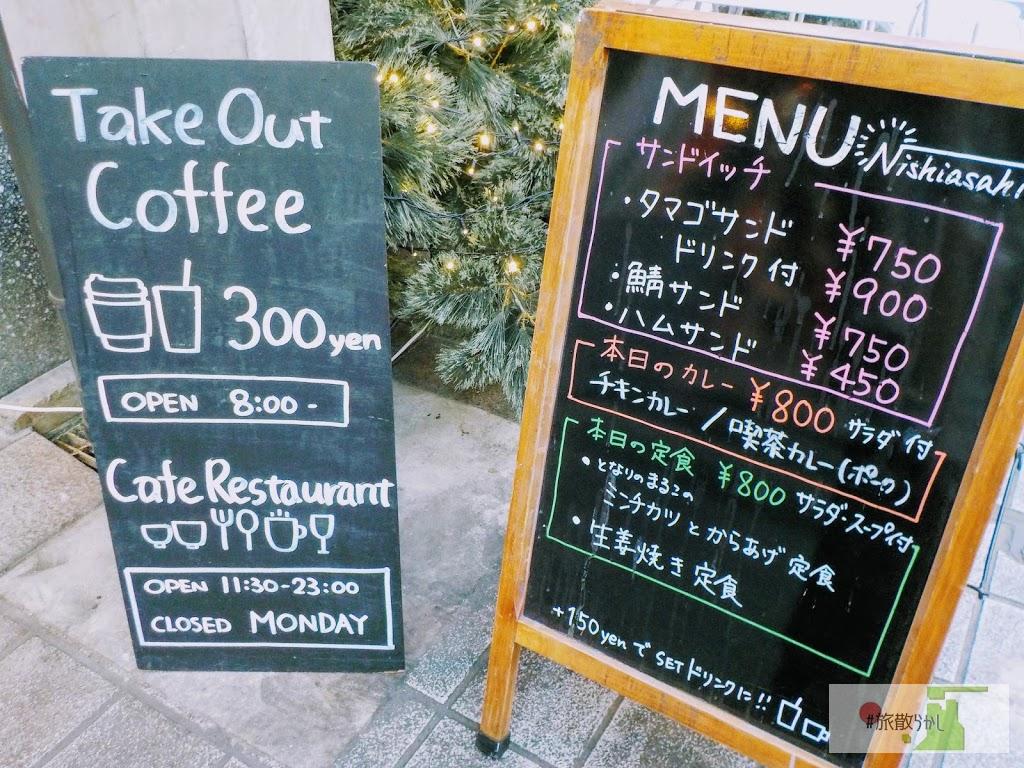 Take Out
Coffee
300yen
OPEN 8:00 -
Cafe Restaurant
OPEN 11:30-23:00
CLOSED MONDAY
MENU Nishiasahi
サンドイッチ
・タマゴサンド ¥750
ドリンク付 ¥900
・鯖サンド ¥750
・ハムサンド ¥450
本日のカレー ¥800 サラダ付
チキンカレー / 喫茶カレー(ポーク)
本日の定食 ¥800 サラダ・スープ付
・となりのまるこの
ミンチカツとからあげ定食
・生姜焼き定食
+150yenでSETドリンクに!!
#旅散らかし